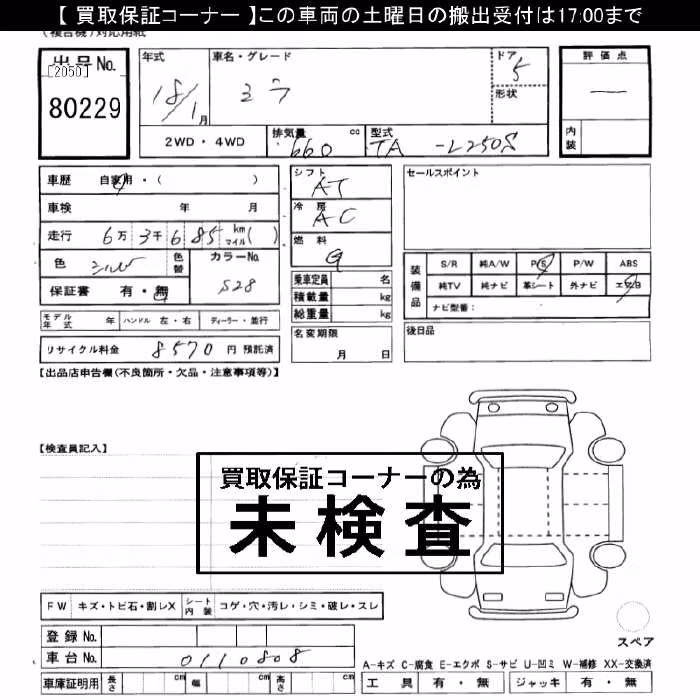 【 買取保証コーナー 】この車両の土曜日の搬出受付は17:00まで
(複合機)対応用紙
出品No.
[2050]
80229
年式
18/1月
車名・グレード
ミラ
ドア
5
形状
評価点
―
内装
2WD・4WD
排気量 cc
660
型式
TA -L250S
車歴 自家用・( )
車検 年 月
走行 6万3千685 km マイル( )
色 シルバ
色替
カラーNo.
S28
保証書 有・無
シフト
AT
冷房
AC
燃料
G
乗車定員 名
積載量 kg
総重量 kg
セールスポイント
装備品
S/R 純A/W P/S P/W ABS
純TV 純ナビ 革シート 外ナビ エアB
ナビ型番:
モデル年式 年 ハンドル 左・右 ディーラー・並行
名変期限
月 日
後日品
リサイクル料金 8570 円 預託済
【出品店申告欄(不良箇所・欠品・注意事項等)】
【検査員記入】
買取保証コーナーの為
未検査
FW キズ・トビ石・割レX シート内装 コゲ・穴・汚レ・シミ・破レ・スレ
登録No.
車台No. 0110808
スペア
A-キズ C-腐食 E-エクボ S-サビ U-凹ミ W-補修 XX-交換済
車庫証明用 長さ cm 幅 cm 高さ cm
工具 有・無 ジャッキ 有・無